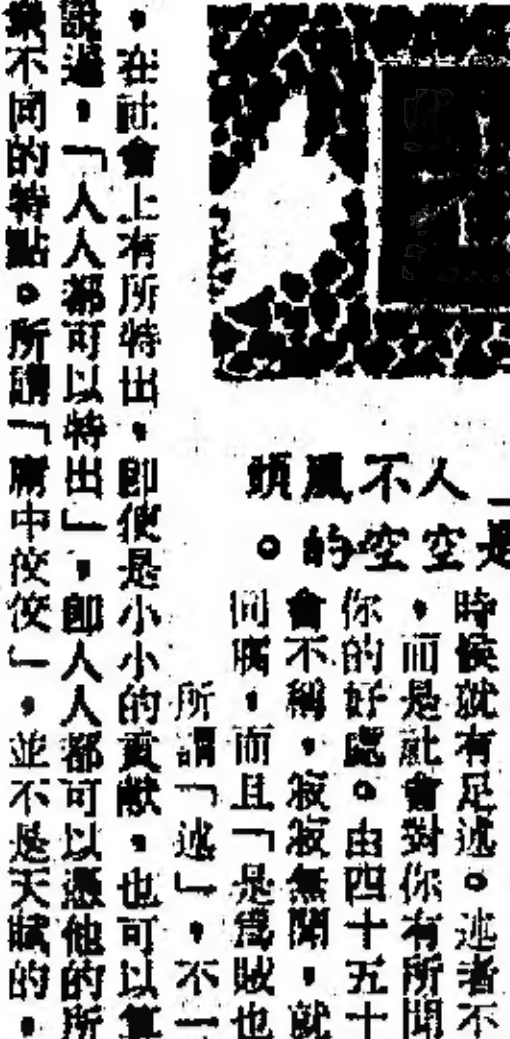 人不鳳頭
是空空的。
時候就有足述。述者不
，而是社會對你有所聞
你的好處。由四十五十
會不稱，寂寂無聞，就
同腐，而且「是為賊也
所謂「述」，不一
，在社會上有所特出，即使是小小的貢獻，也可以算
說過，「人人都可以特出」，即人人都可以憑他的所
業不同的特點。所謂「庸中佼佼」，並不是天賦的，